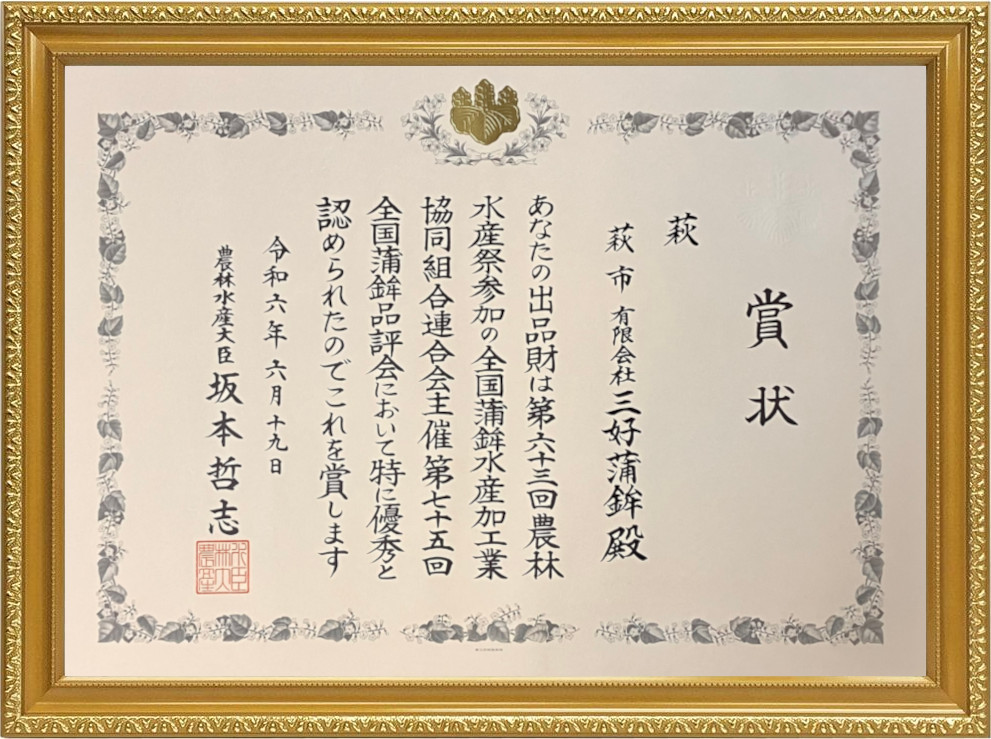 賞状
萩
萩市 有限会社 三好蒲鉾殿
あなたの出品財は第六十三回農林
水産祭参加の全国蒲鉾水産加工業
協同組合連合会主催第七十五回
全国蒲鉾品評会において特に優秀と
認められたのでこれを賞します
令和六年六月十九日
農林水産大臣 坂本哲志